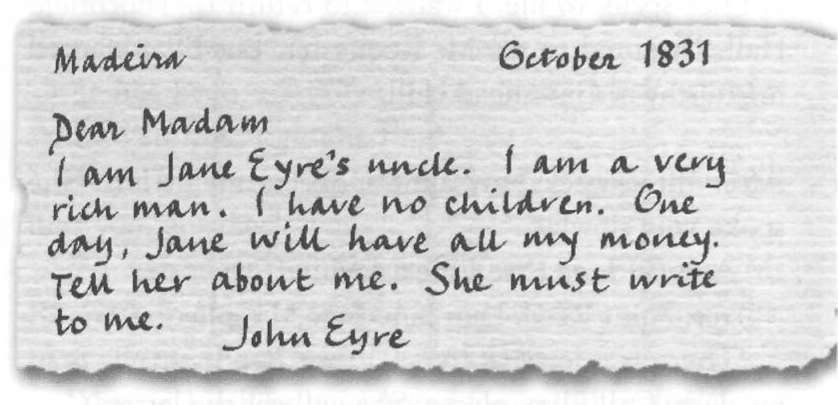 Madeira October 1831
Dear Madam
I am Jane Eyre's uncle. I am a very
rich man. I have no children. One
day, Jane will have all my money.
Tell her about me. She must write
to me.
John Eyre